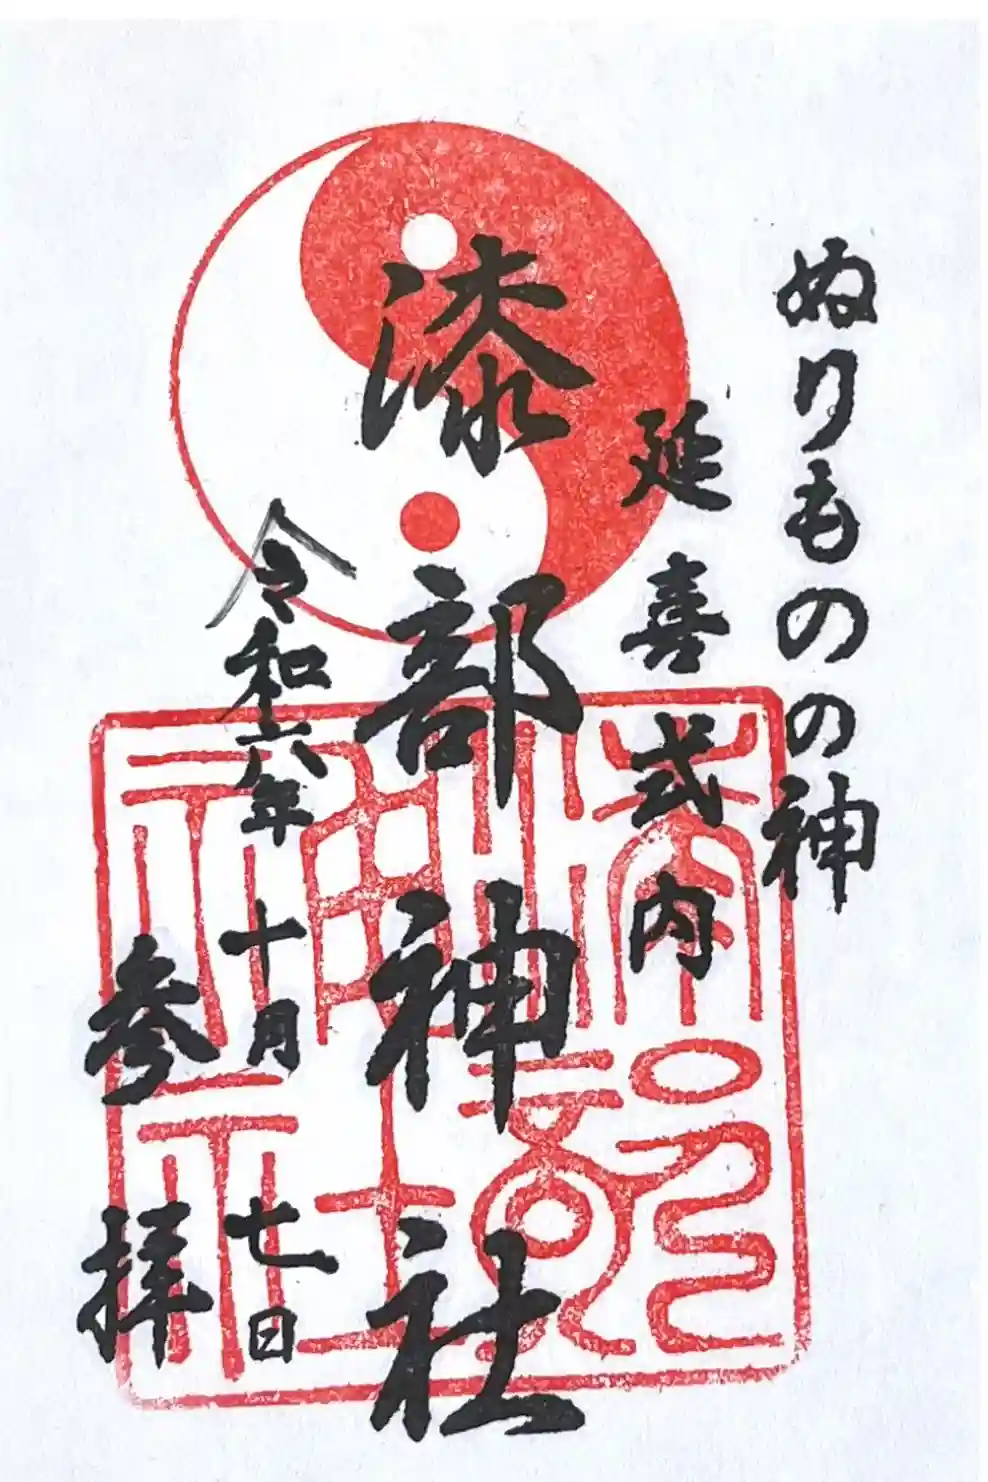 ぬりものの神
延喜式内
漆部神社
令和六年十月七日
参拝
漆部神社